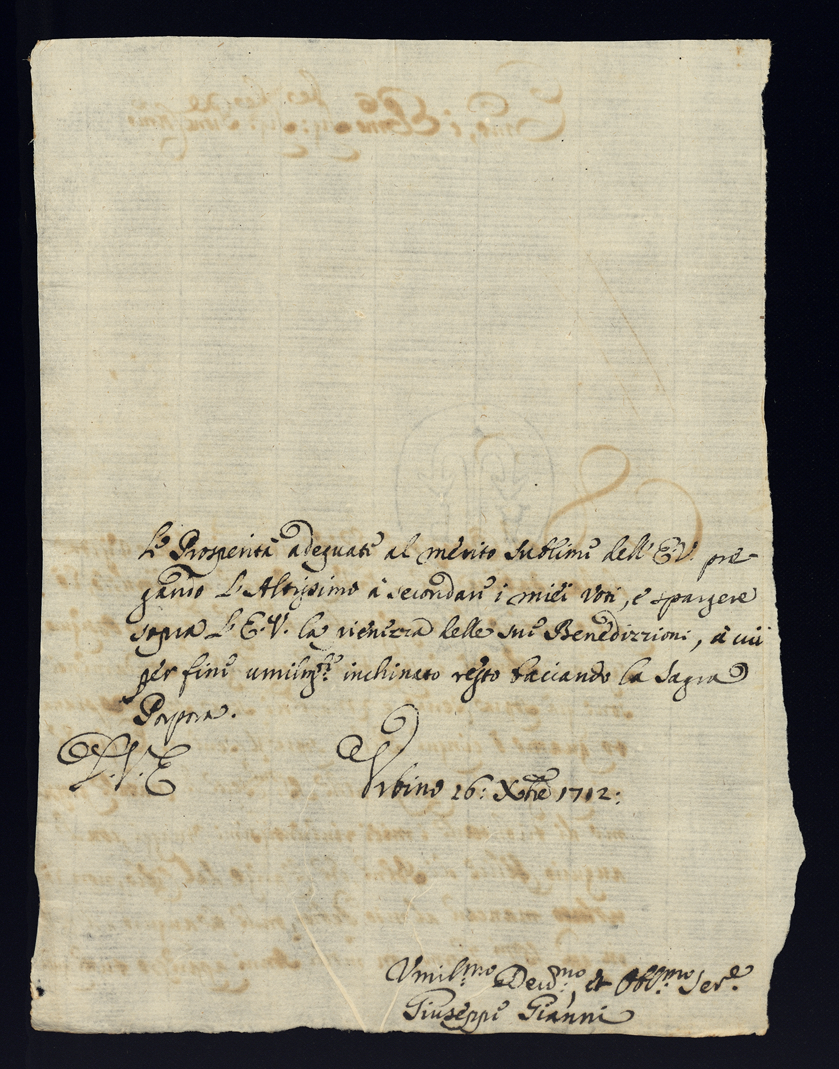 le Prosperità adeguate al merito sublime dell'E.V. pre-
gando L'Altissimo à secondare i miei voti, e spargere
sopra L'E.V. la pienezza delle sue Benedizzioni, à cui
per fine umilm.te inchinato resto bacciando la Sagra
Porpora.
D.V.E
Urbino 26: Xbre 1712:
Vmil.mo Deud.mo, et Obl.mo Ser.e
Giuseppe Gianni